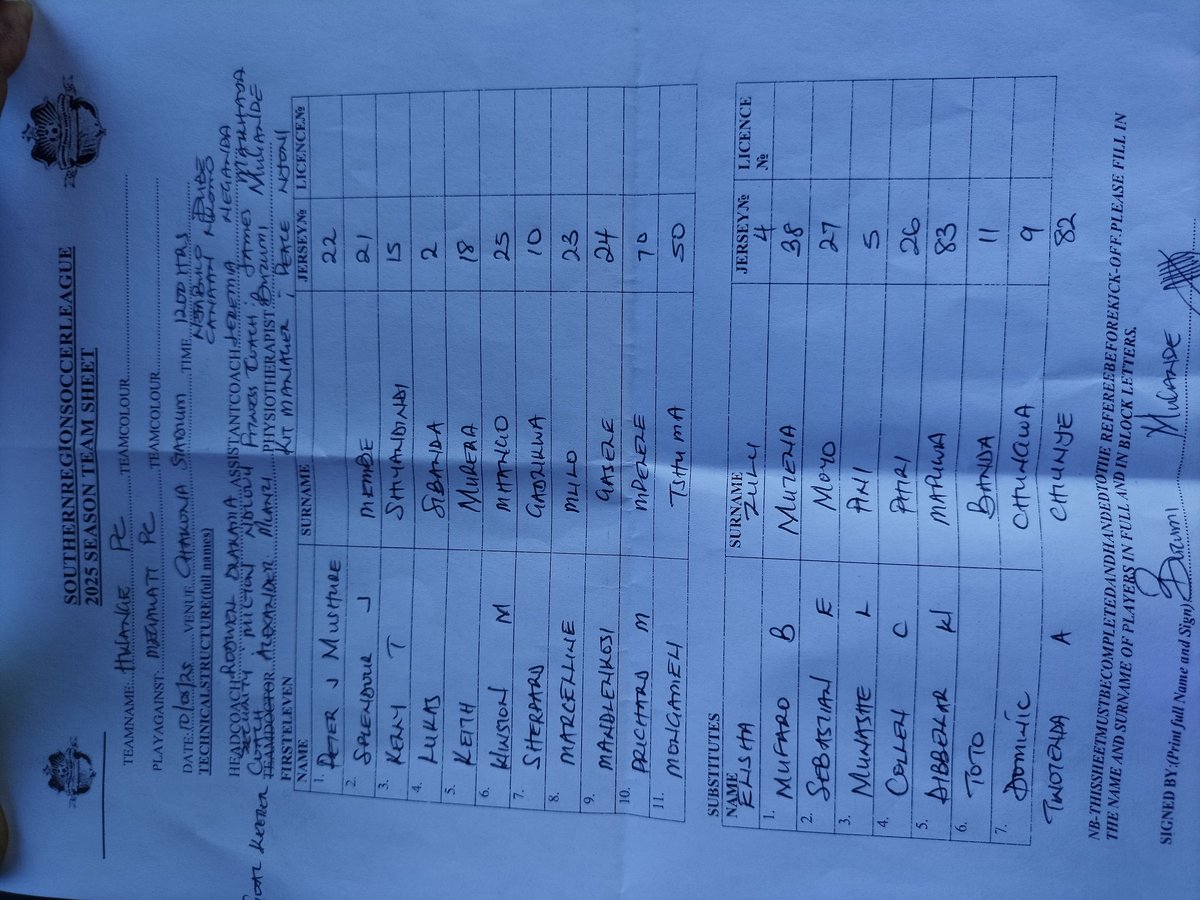 SOUTHERNREGIONSOCCERLEAGUE
2025 SEASON TEAM SHEET
TEAMNAME: HWANGE FC TEAMCOLOUR
PLAYAGAINST: FC TEAMCOLOUR
DATE: 10/05/25 VENUE: CHAKONA STADIUM TIME 1200 HRS
TECHNICALSTRUCTURE(full names) DUBE
CANAAN NKOMO
HEADCOACH RODWELL DLAKAMA ASSISTANTCOACH JEREMIA
SECURITY MILTON NDLOVU FITNESS COACH: JAMES MAKHADA
TEAMDOCTOR ALEXANDER PHYSIOTHERAPIST BAZUMI MUGANDE
GOAL KEEPER COACH
KIT MANAGER: PEACE NYONI
FIRSTELEVEN
NAME SURNAME JERSEY.№ LICENCE.№
1. PETER J MUSHURE 22
2. SPLENDOUR J 21
3. KENY T SIYANDINDI 15
4. LUKAS SIBANDA 2
5. KEITH MURERA 18
6. WINSTON M MHANGO 25
7. SHEPARD GADZIKWA 10
8. MARCELLINE MLILO 23
9. MANDLENKOSI GASELE 24
10. PRICHARD M MPELELE 70
11. MONGAMELI TSHUMA 50
SUBSTITUTES
NAME SURNAME JERSEY.№ LICENCE №
ELISHA ZULU 4
1. MUFARO B MUZENA 38
2. SEBASTIAN E MOYO 27
3. MUNASHE L PINI 5
4. COLLEN C PHIRI 26
5. W MARUWA 83
6. TOTO BANDA 11
7. DOMINIC CHUNGWA 9
TINOTENDA A CHUNYE 82
NB-THISSHEETMUSTBECOMPLETEDANDHANDEDTOTHE REFEREEBEFOREKICK-OFF.PLEASE FILL IN
THE NAME AND SURNAME OF PLAYERS IN FULL AND IN BLOCK LETTERS.
SIGNED BY:(Print full Name and Sign) BAZUMI MUGANDE